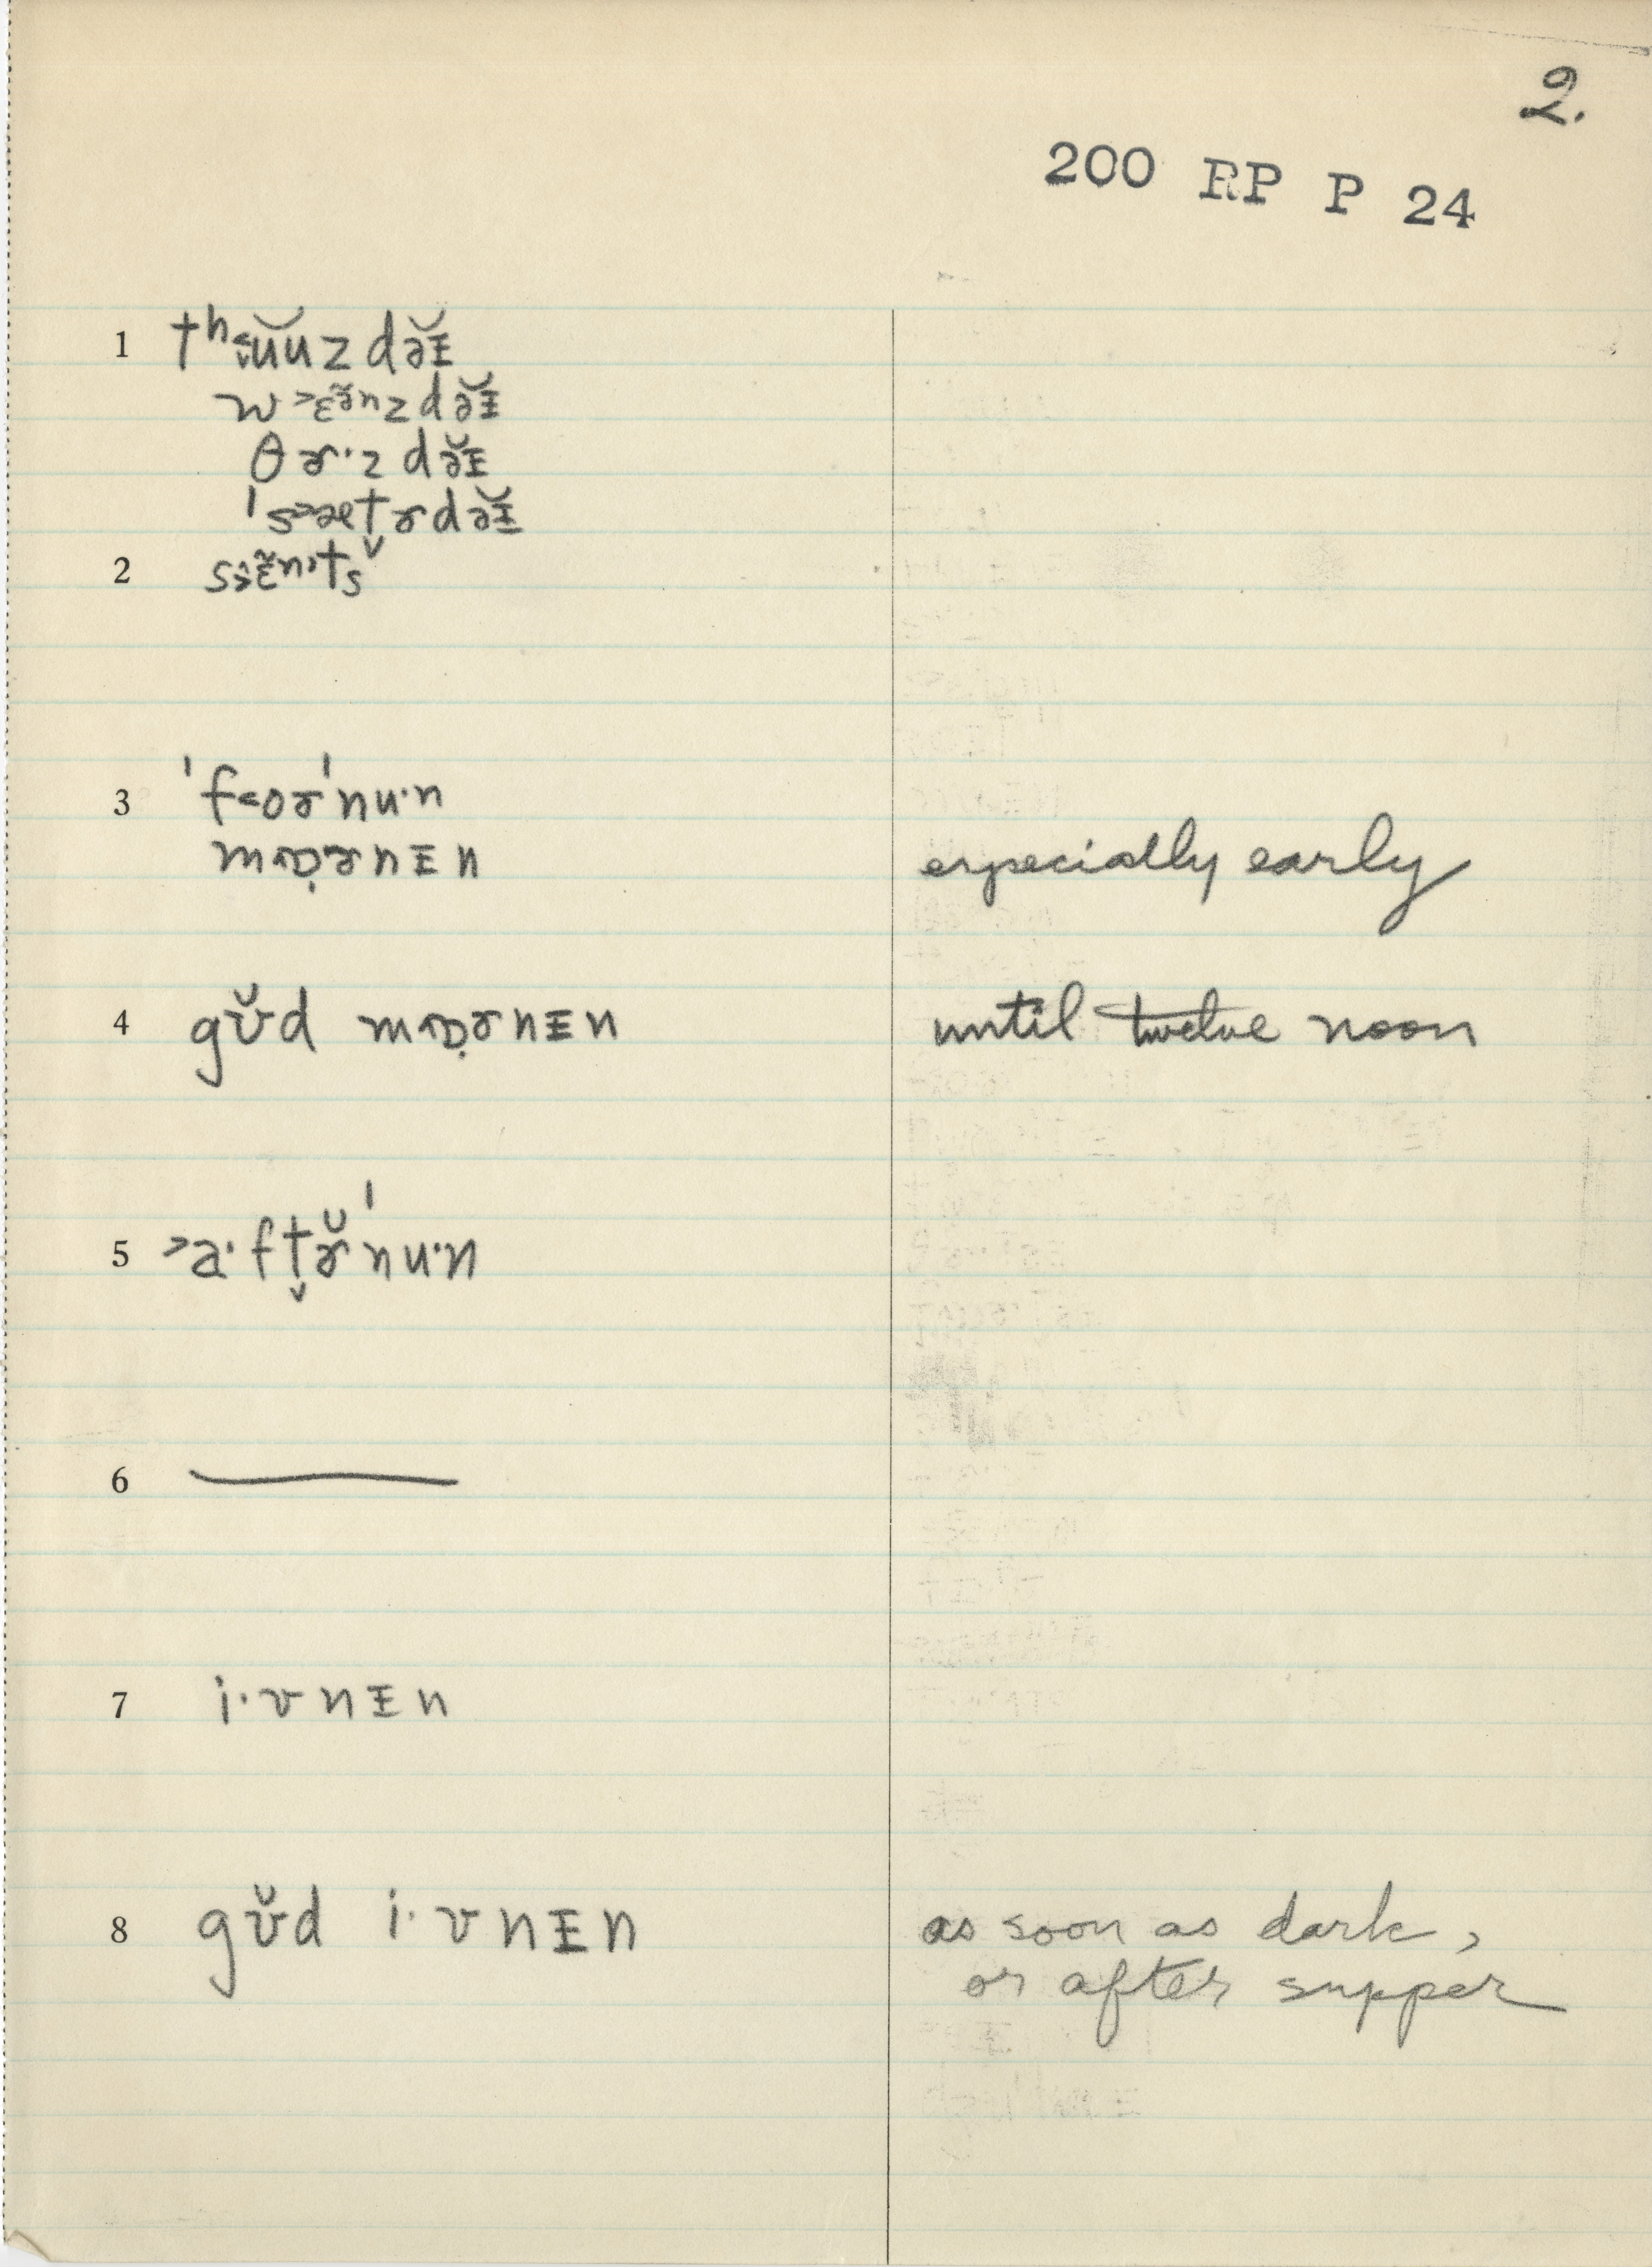 2.
200 RP P 24
1 tʰ˂ɨŭu̯zdə̆ɪ
w˃ɛə̃ⁿzdə̆ɪ
θɚ·zdə̆ɪ
ˈs˃æt̬ɚdə̆ɪ
2 sɛ̃ⁿts
3 ˈf˂oɚˈnu·n
mɒ̣ɚnɪn especially early
4 gʊ̆d mɒ̣ɚnɪn until twelve noon
5 ˃a·ft̬ɚ̆ˈnu·n
6 ———
7 i·vnɪn
8 gʊ̆d i·vnɪn as soon as dark,
or after supper